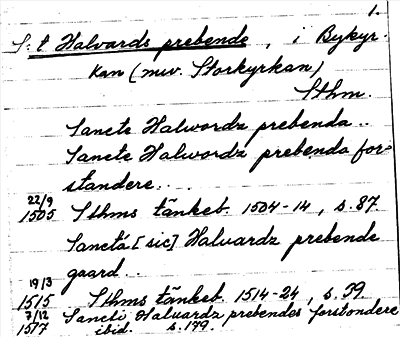 1.
S:t Halvards prebende, i Bykyr-
kan (nuv. Storkyrkan)
Sthm.
Sancte Halwordz prebenda ..
Sancte Halwordz prebenda for-
standere. . .
22/9
1505 Sthms tänkeb. 1504-14, s. 87
Sanctá [sic] Halvardz prebende
gaard ..
19/3
1515 Sthms tänkeb. 1514-24, s. 39
7/12
1517 Sancti Halvardz prebendes forstondere
ibid. s. 179.